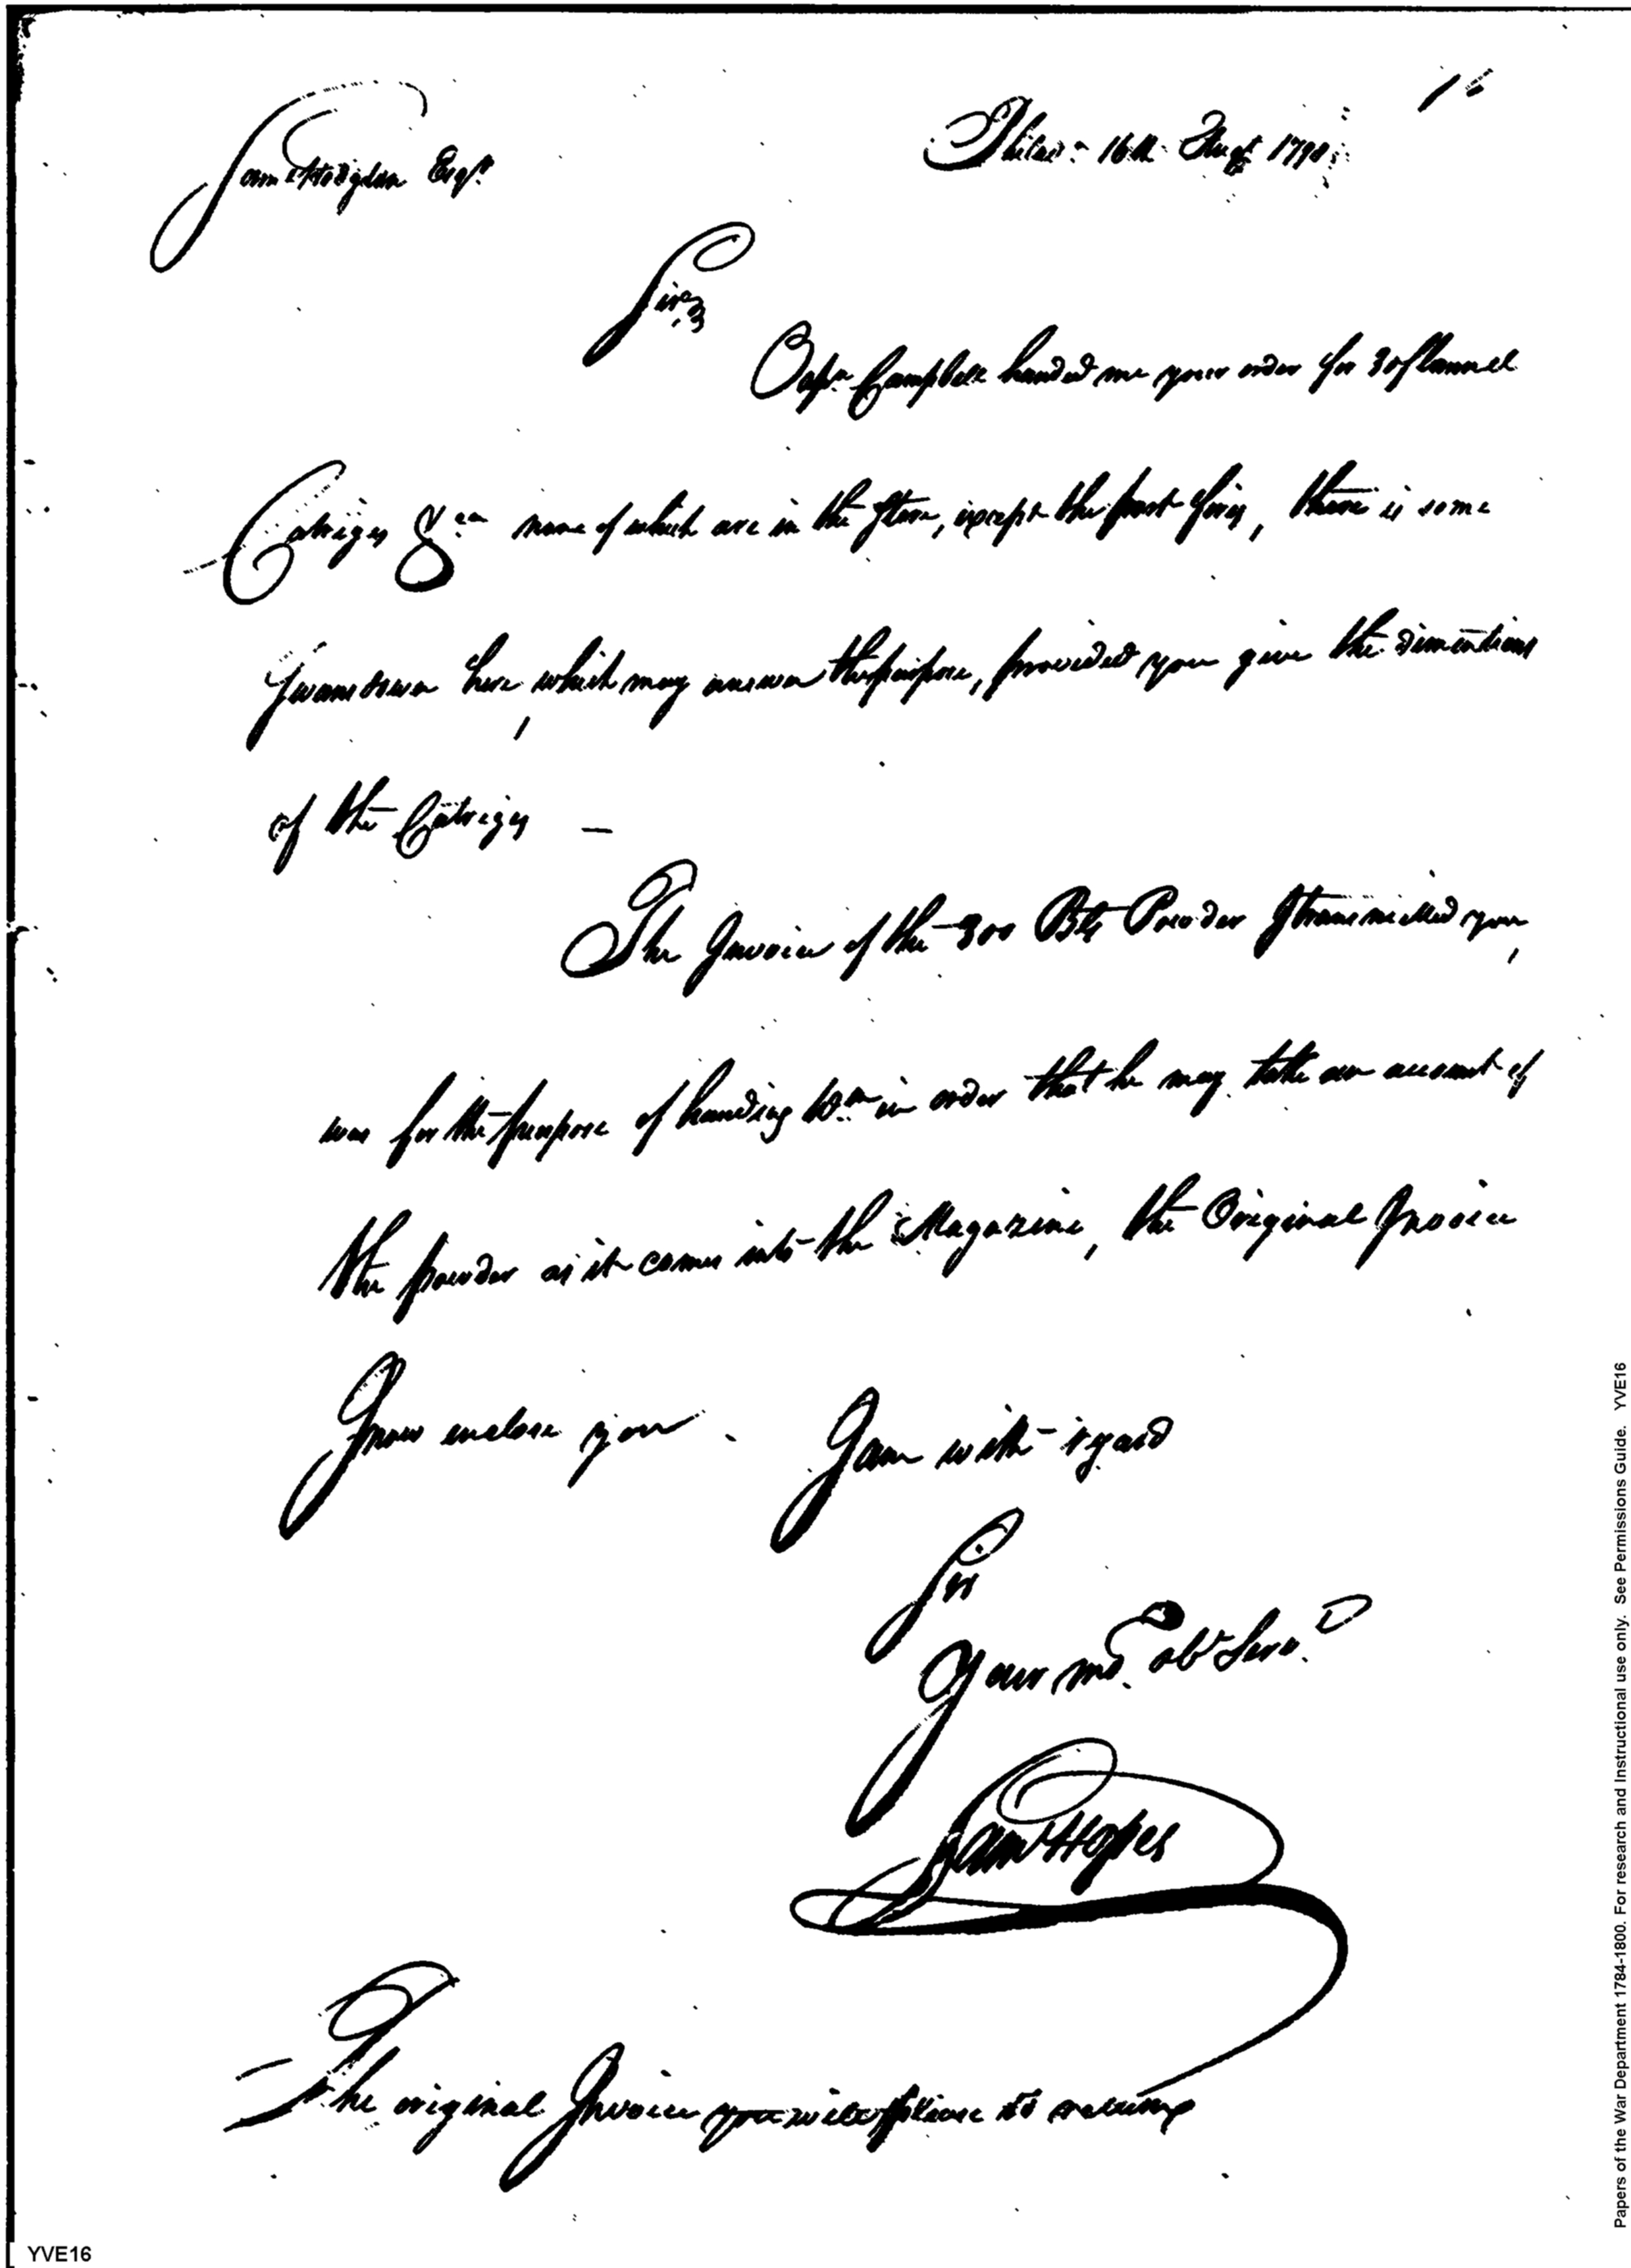 16
Philad: 16th Augt 1798
Sam Hodgdon Esqr.
Sir,
Capn. Campbell handed me your order for 30 flannel
Catriges &ca none of which are in the Store, except the port fires, there is some
Swansdown here, which may answer the purpose, provided you give the dimentions
of the Catriges —
The Invoice of the 300 Bls Powder I transmitted you,
was for the purpose of handing in order that he may take an account of
the powder as it comes into the Magazine, the Original Invoice
I now enclose you. I am with regard
Sir
Your mo. obt Serv.
Saml Hopes
The original Invoice you will please to return
YVE16
Papers of the War Department 1784-1800. For research and Instructional use only. See Permissions Guide. YVE16